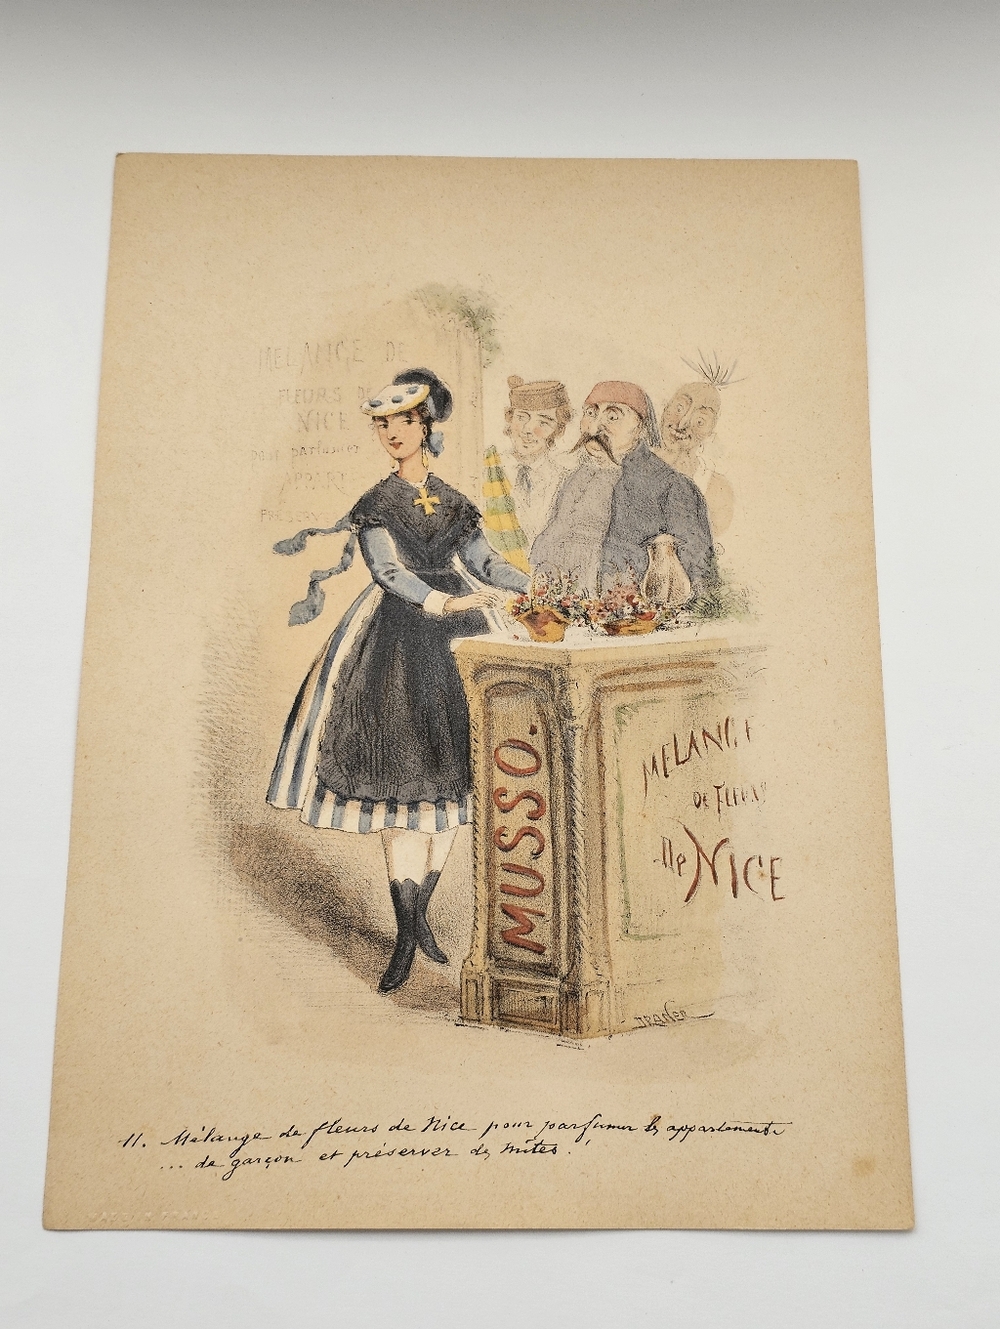 MELANGE DE
FLEURS DE
NICE
pour parfumer
APPART
PRESERV
MUSSO.
MELANGE
DE FLEURS
De NICE
DRANER
11. Mélange de fleurs de Nice pour parfumer les appartements
... de garçon et préserver des mites!